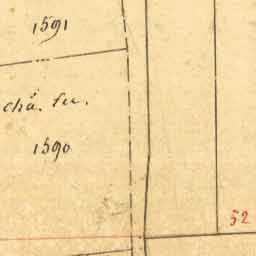 1591
chă. fu.
1590
52